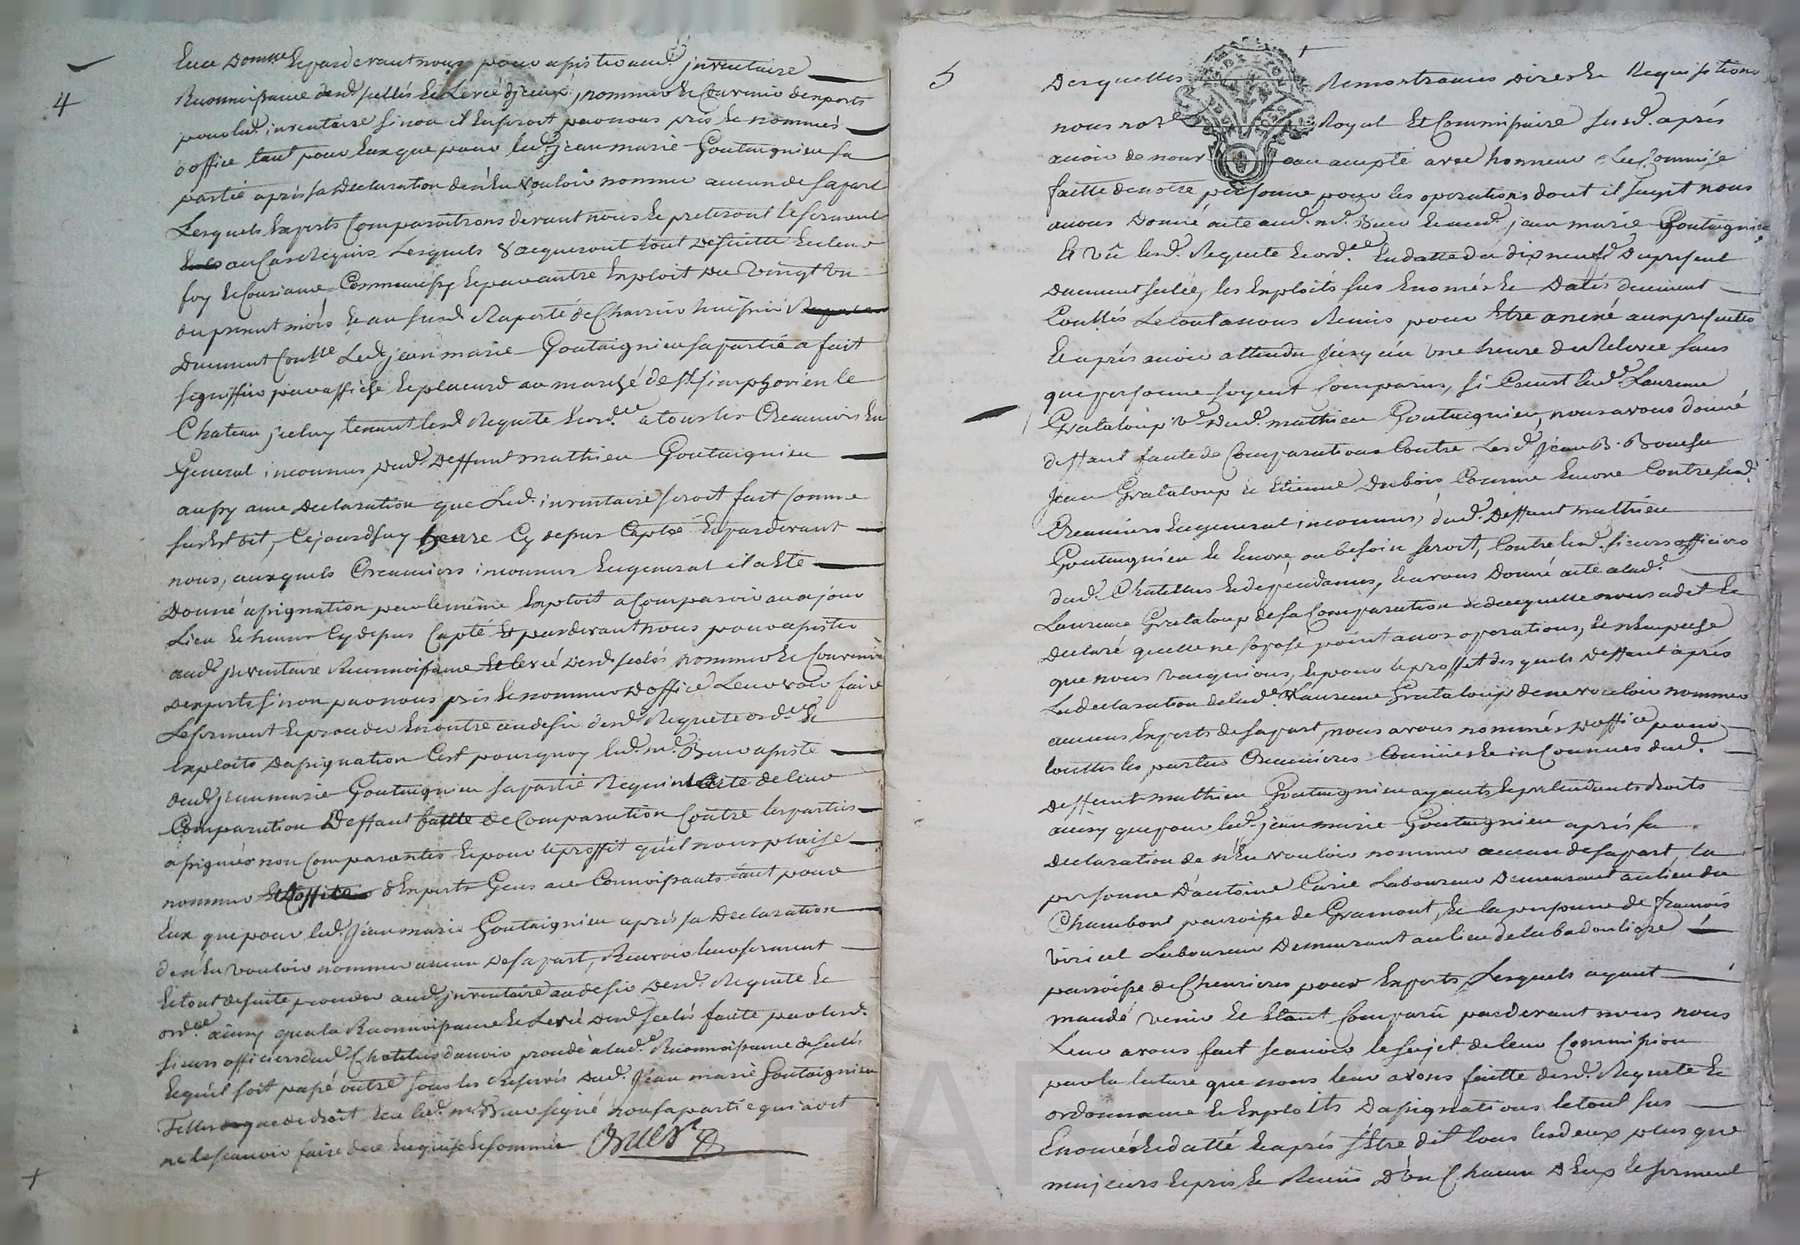 4
Leur Domlle Et par devant nous pour assister aud. inventaire
Reconnoissance desd. scellés Et Levée d'jceux, nommer Et Convenir d'experts
pour led. inventaire sinon il En seroit par nous pris Et nommés
d'office tant pour Eux que pour led. jean marie Goutaignieu sa
partie après sa Declaration de n'En vouloir nommer aucun de sa part
Lesquels Experts Comparoitrons devant nous Et preteront le serment
au Cas Requis Lesquels vaqueront tout De suitte En leur
foy Et Consiance Comme aussy Et par autre Exploit Du Vingt Un
du present mois Et au susd. Raporté de Huissier
Duement Conttlé Led. jean marie Goutaignieu sa partie a fait
signiffier par affiche Et placard au marché de St. simphorien le
Chateau jceluy tenant lesd. Requete Et ord.ce a tous les Creanciers En
General inconnus dud. Deffunt mathieu Goutaignieu
aussy avec Declaration que Led. inventaire seroit fait Comme
sus Est dit, Cejourd'huy heure Cy depus Cptée Et par devant
nous, auxquels Creanciers inconnus En general il a Eté
Donné assignation par le meme Exploit a Comparoir aux jour
Lieu Et heure Cy depus Capté Et par devant nous pour assister
aud. jnventaire Reconnoissance Et levée Desd. scelés nommer Et Convenir
D'experts sinon par nous pris Et nommés D'office Leur voir faire
Le serment Et proceder En outre au desir desd. Requete ord.ce Et
Exploits D'assignation C'est pourquoy led. m.e Bruer assisté
dud. jean marie Goutaignieu sa partie Requiert acte de leur
Comparution Deffaut faute de Comparution Contre les parties
assignées non Comparantes Et pour le proffit qu'il nous plaise
nommer d'Experts Gens a ce Connoissants tant pour
Eux que pour led. Jean marie Goutaignieu après sa Declaration
de n'En vouloir nommer aucun De sa part, Recevoir leur serment
Et tout de suitte proceder aud. jnventaire au desir Desd. Requete Et
ord.ce ainsy qu'a la Reconnoissance Et Levée Desd. scelés faitte par lesd.
sieurs officiers dud. Chatelus d'avoir procedé a lad.e Reconnoissance de scelés
Et qu'il soit passé outre sous les Reserves Dud. Jean marie Goutaignieu
Telles que de droit Et a led. m.e Bruer signé non sa partie qui a dit
ne le scavoir faire de ce Enquise Et sommée Bruer
5
Desquelles Remontrances Dires Et Requisitions
nous Royal Et Commissaire susd. après
avoir de nouveau accepté avec honneur La Commise
faitte de notre personne pour les operations dont il s'agit nous
avons Donné acte aud. m.e Bruer Et aud. jean marie Goutaignieu
Et Vû lesd. Requete Et ord.ce En datte du dix neuf Du present
Duement scelée, les Exploits sus Enoncés Et Datés duement
Conttlés Le tout a nous Remis pour Etre anexé aux presentes
Et après avoir attendu jusqu'a Une heure de Relevée sans
que personne soyent Comparus, si Ce n'est lad.e Laurence
Grataloup V.e Dud. mathieu Goutaignieu, nous avons donné
deffaut faute de Comparution Contre Lesd. Jean B. Bonesu
Jean Grataloup Et Etienne Dubois Comme Encore Contre lesd.
Creanciers En general inconnus, dud. Deffunt mathieu
Goutaignieu Et Encore au besoin seroit, Contre lesd. sieurs officiers
dud. Chatelus Et dépendances, Et avons Donné acte a lad.e
Laurence Grataloup de sa Comparution Et de ce quelle nous a dit Et
Declaré quelle ne s'opose point a nos operations, Et n'Empeche
que nous vacquions, Et pour le proffit desquels Deffaut après
La declaration de lad.e Laurence Grataloup de ne vouloir nommer
aucuns Experts de sa part, nous avons nommés D'office pour
touttes les parties Creancieres Connües Et inConnües dud.
deffunt mathieu Goutaignieu ayants Et pretendants droits
ainsy que pour led. jean marie Goutaignieu après sa
Declaration de n'En vouloir nommer aucun de sa part, la
personne D'antoine Curie Laboureur Demeurant au lieu du
Chambont paroisse de Gramont, Et la personne de francois
viricel Laboureur Demeurant au lieu de la badouliere
paroisse de Chevrieres pour Experts Lesquels ayant
mandé Venir Et Etant Comparû par devant nous nous
Leur avons fait scavoir le sujet de leur Commission
par la lecture que nous leur avons faitte desd. Requete Et
ordonnance Et Exploits D'assignations le tout sus
Enoncés Et datté Et après s'Etre dit tous les deux plus que
majeurs Et pris Et Recüs D'un Chacun D'Eux le serment